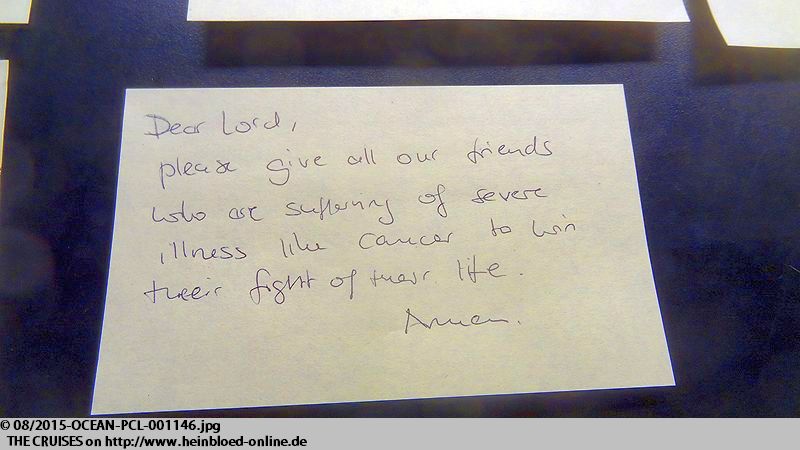 Dear Lord,
please give all our friends
who are suffering of severe
illness like cancer to win
their fight of their life.
Amen.
© 08/2015-OCEAN-PCL-001146.jpg
THE CRUISES on http://www.heinbloed-online.de